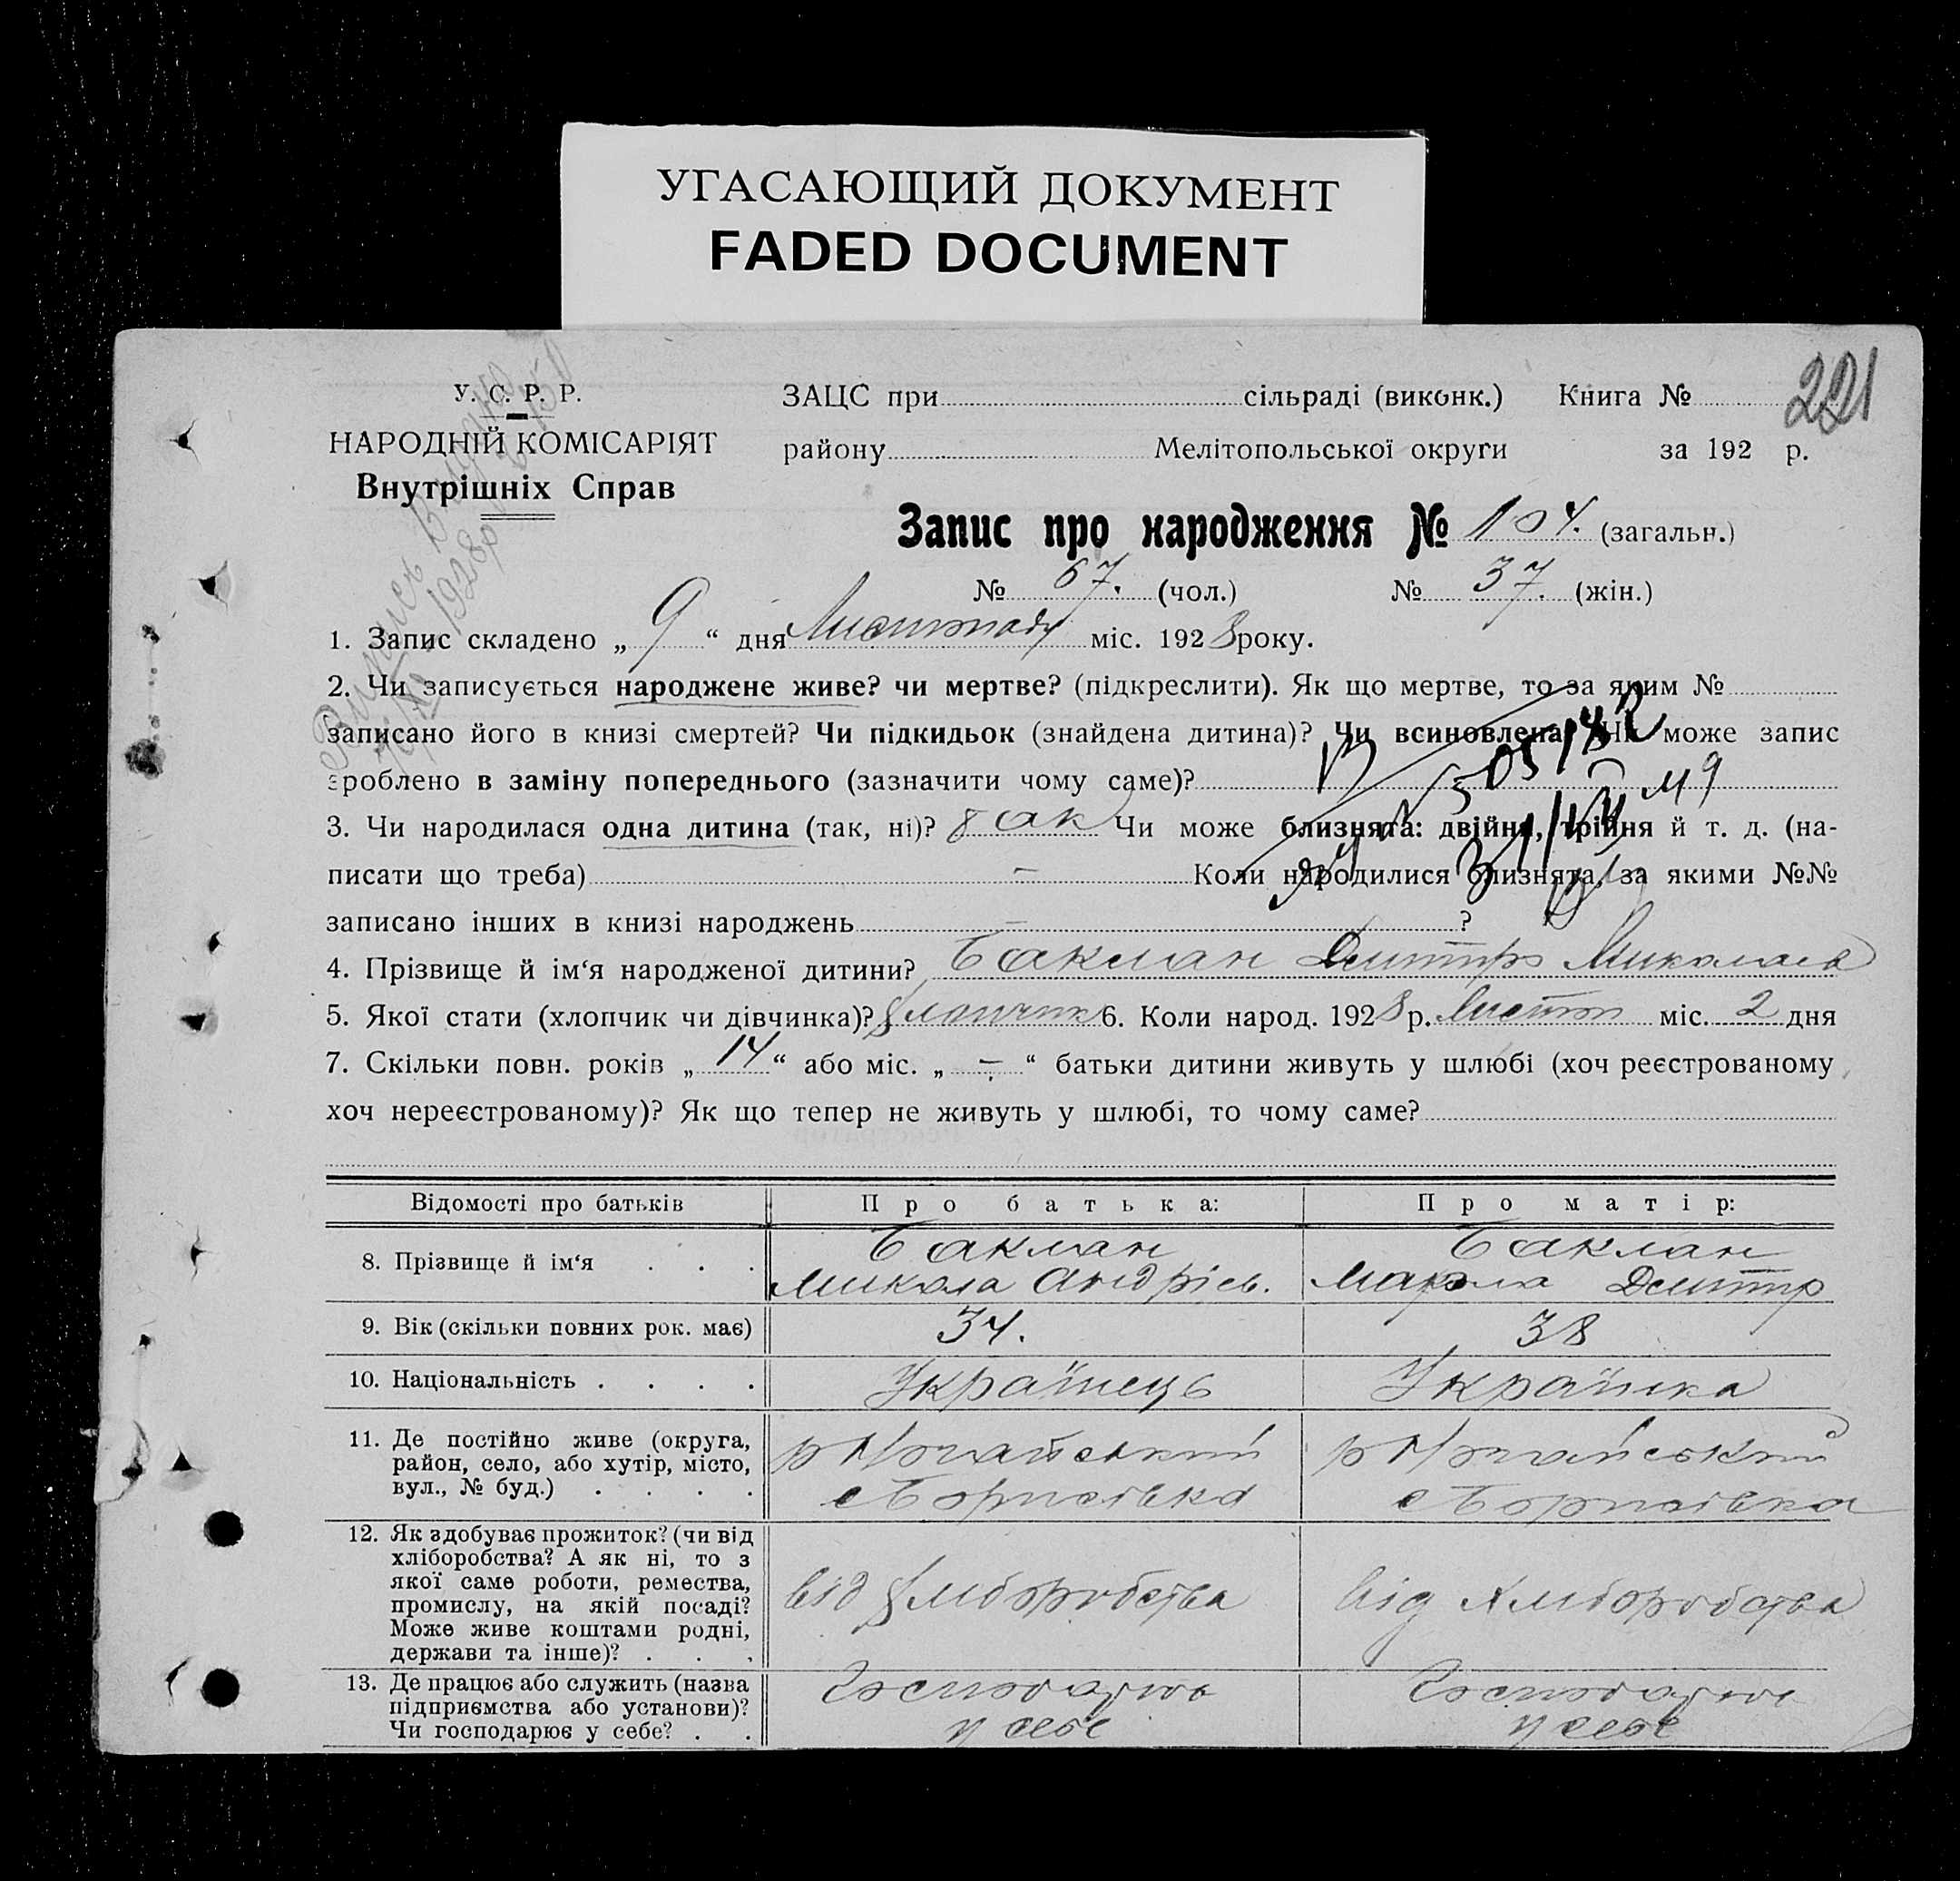 УГАСАЮЩИЙ ДОКУМЕНТ
FADED DOCUMENT
221
У. С. Р. Р.
НАРОДНІЙ КОМІСАРІЯТ
Внутрішніх Справ
ЗАЦС при сільраді (виконк.) Книга №
району Мелітопольської округи за 192 р.
Запис про народження № 104. (загальн.)
№ 67. (чол.) № 37. (жін.)
Випись видано
1928р
1. Запис складено „ 9 “ дня Листопаду міс. 1928 року.
2. Чи записується народжене живе? чи мертве? (підкреслити). Як що мертве, то за яким №
записано його в книзі смертей? Чи підкидьок (знайдена дитина)? Чи всиновлена? Чи може запис
зроблено в заміну попереднього (зазначити чому саме)?
3. Чи народилася одна дитина (так, ні)? так Чи може близнята: двійня, трійня й т. д. (на-
писати що треба) — Коли народилися близнята, за якими №№
записано інших в книзі народжень — ?
4. Прізвище й ім‘я народженої дитини? Баклан Дмитро Миколаєв
5. Якої стати (хлопчик чи дівчинка)? хлопчик 6. Коли народ. 1928 р. Листоп міс. 2 дня
7. Скільки повн. років „ 14 “ або міс. „ — “ батьки дитини живуть у шлюбі (хоч реєстрованому
хоч нереєстрованому)? Як що тепер не живуть у шлюбі, то чому саме?
Відомості про батьків Про батька: Про матір:
8. Прізвище й ім‘я . . . Баклан Микола Андрієв. Баклан Дмитр
9. Вік (скільки повних рок. має) 34. 38
10. Національність . . . . Українець Українка
11. Де постійно живе (округа,
район, село, або хутір, місто,
вул., № буд.) . . . .
с Борисівка с Борисівка
12. Як здобуває прожиток? (чи від
хліборобства? А як ні, то з
якої саме роботи, ремества,
промислу, на якій посаді?
Може живе коштами родні,
держави та інше)? . . .
від хліборобства від хліборобства
13. Де працює або служить (назва
підприємства або установи)?
Чи господарює у себе? . .
Господарює у себе Господарює у себе